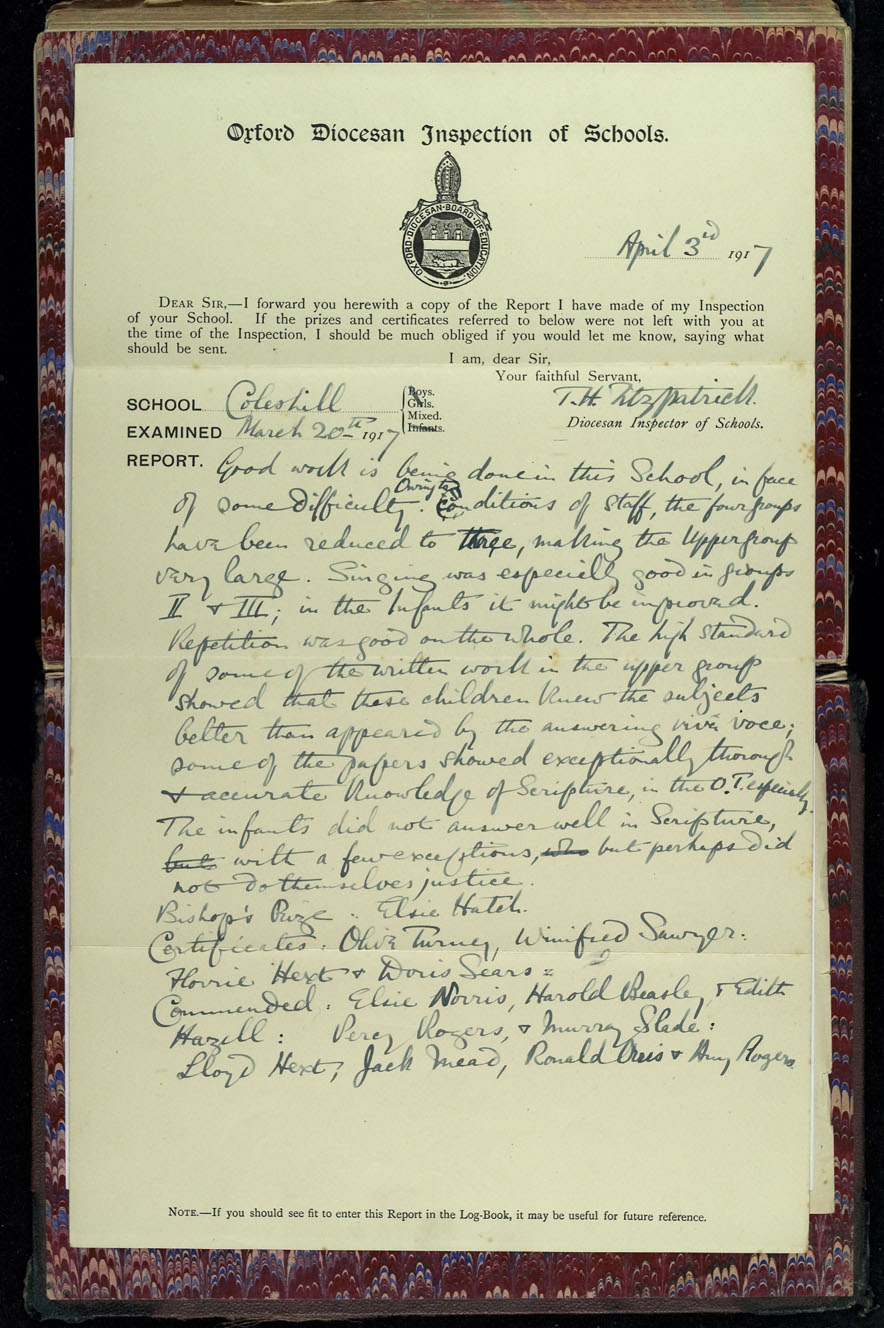 Oxford Diocesan Inspection of Schools.
OXFORD·DIOCESAN·BOARD·OF·EDUCATION·
April 3rd 1917
DEAR SIR,—I forward you herewith a copy of the Report I have made of my Inspection
of your School. If the prizes and certificates referred to below were not left with you at
the time of the Inspection, I should be much obliged if you would let me know, saying what
should be sent.
I am, dear Sir,
Your faithful Servant,
T. H. Fitzpatrick.
Diocesan Inspector of Schools.
SCHOOL Coleshill
Boys.
Girls.
Mixed.
Infants.
EXAMINED March 20th 1917
REPORT. Good work is being done in this School, in face
of some difficulty. Owing to conditions of Staff, the four groups
have been reduced to three, making the Upper group
very large. Singing was especially good in groups
II & III; in the Infants it might be improved.
Repetition was good on the whole. The high standard
of some of the written work in the upper group
showed that these children knew the subjects
better than appeared by the answering vivâ voce;
some of the papers showed exceptionally thorough
& accurate knowledge of Scripture, in the O.T. especially.
The infants did not answer well in Scripture,
but with a few exceptions, but perhaps did
not do themselves justice.
Bishop's Prize : Elsie Hatch.
Certificates : Olive Turney, Winifred Sawyer :
Florrie Hext & Doris Sears =
Commended : Elsie Norris, Harold Beasley, & Edith
Hazell : Percy Rogers, & Murray Slade :
Lloyd Hext, Jack Mead, Ronald & Amy Rogers
NOTE.—If you should see fit to enter this Report in the Log-Book, it may be useful for future reference.